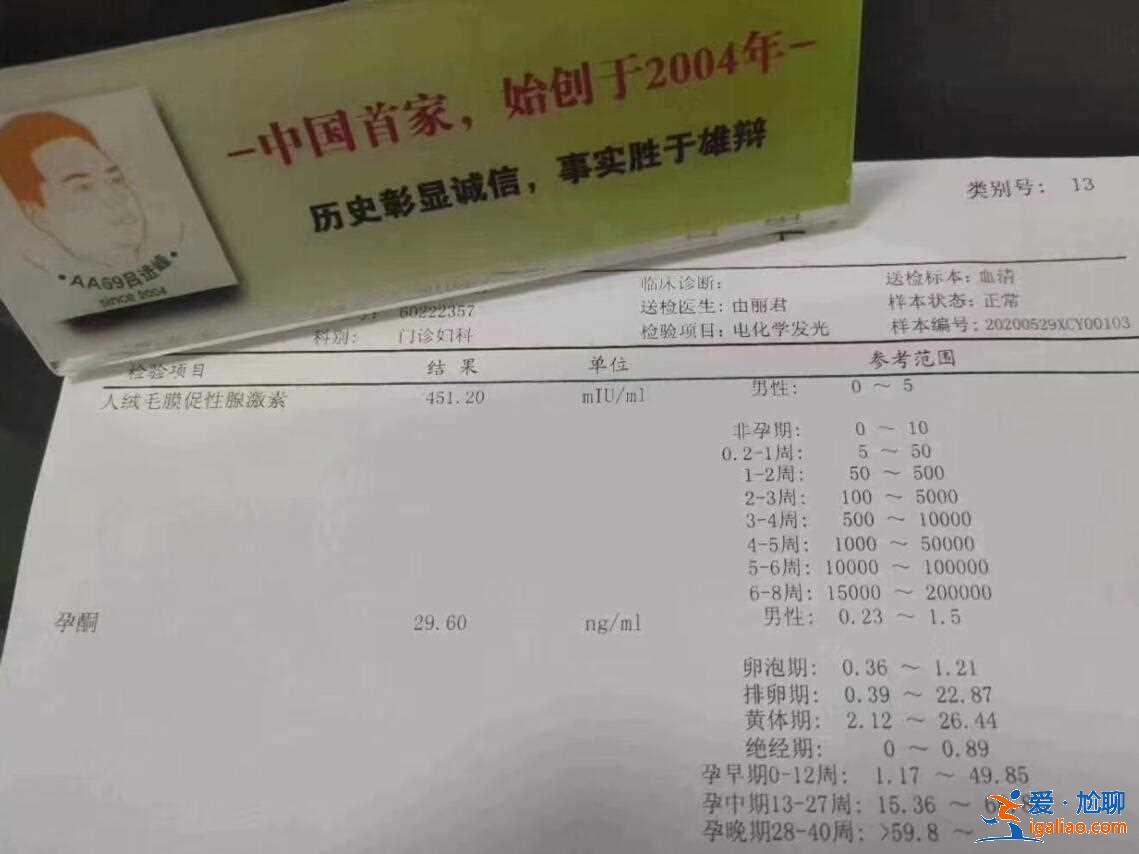 -中国首家,始创于2004年-
历史彰显诚信,事实胜于雄辩
•AA69吕进峰•
since 2004
类别号: 13
临床诊断:
送检标本:血清
60222357
送检医生:由丽君
样本状态:正常
科别: 门诊妇科
检验项目:电化学发光
样本编号:20200529XCY00103
检验项目 结 果 单位 参考范围
人绒毛膜促性腺激素 451.20 mIU/ml 男性: 0 ~ 5
非孕期: 0 ~ 10
0.2-1周: 5 ~ 50
1-2周: 50 ~ 500
2-3周: 100 ~ 5000
3-4周: 500 ~ 10000
4-5周: 1000 ~ 50000
5-6周: 10000 ~ 100000
6-8周: 15000 ~ 200000
孕酮 29.60 ng/ml 男性: 0.23 ~ 1.5
卵泡期: 0.36 ~ 1.21
排卵期: 0.39 ~ 22.87
黄体期: 2.12 ~ 26.44
绝经期: 0 ~ 0.89
孕早期0-12周: 1.17 ~ 49.85
孕中期13-27周: 15.36 ~
孕晚期28-40周: >59.8 ~
爱·尬聊
igaliao.com